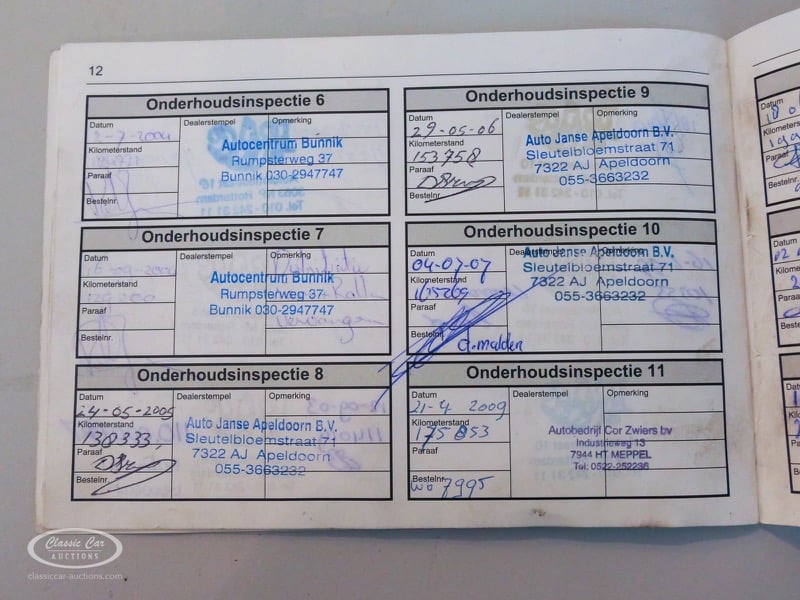 12
Onderhoudsinspectie 6
Datum
Dealerstempel
Opmerking
2-7-2004
Kilometerstand
Paraaf
Bestelnr.
Autocentrum Bunnik
Rumpsterweg 37
Bunnik 030-2947747
Onderhoudsinspectie 7
Datum
Dealerstempel
Opmerking
Kilometerstand
Paraaf
Bestelnr.
Autocentrum Bunnik
Rumpsterweg 37
Bunnik 030-2947747
Distributie
vervangen
Onderhoudsinspectie 8
Datum
Dealerstempel
Opmerking
24-05-2005
Kilometerstand
138333,
Paraaf
Bestelnr.
Auto Janse Apeldoorn B.V.
Sleutelbloemstraat 71
7322 AJ Apeldoorn
055-3663232
Onderhoudsinspectie 9
Datum
Dealerstempel
Opmerking
29-05-06
Kilometerstand
153758
Paraaf
Bestelnr.
Auto Janse Apeldoorn B.V.
Sleutelbloemstraat 71
7322 AJ Apeldoorn
055-3663232
Onderhoudsinspectie 10
Datum
Dealerstempel
Opmerking
04-07-07
Kilometerstand
Paraaf
Bestelnr.
Auto Janse Apeldoorn B.V.
Sleutelbloemstraat 71
7322 AJ Apeldoorn
055-3663232
Onderhoudsinspectie 11
Datum
Dealerstempel
Opmerking
21-4 2009
Kilometerstand
175853
Paraaf
Bestelnr.
wo 7995
Autobedrijf Cor Zwiers bv
Industrieweg 13
7944 HT MEPPEL
Tel: 0522-252236
Classic Car
AUCTIONS
classiccar-auctions.com